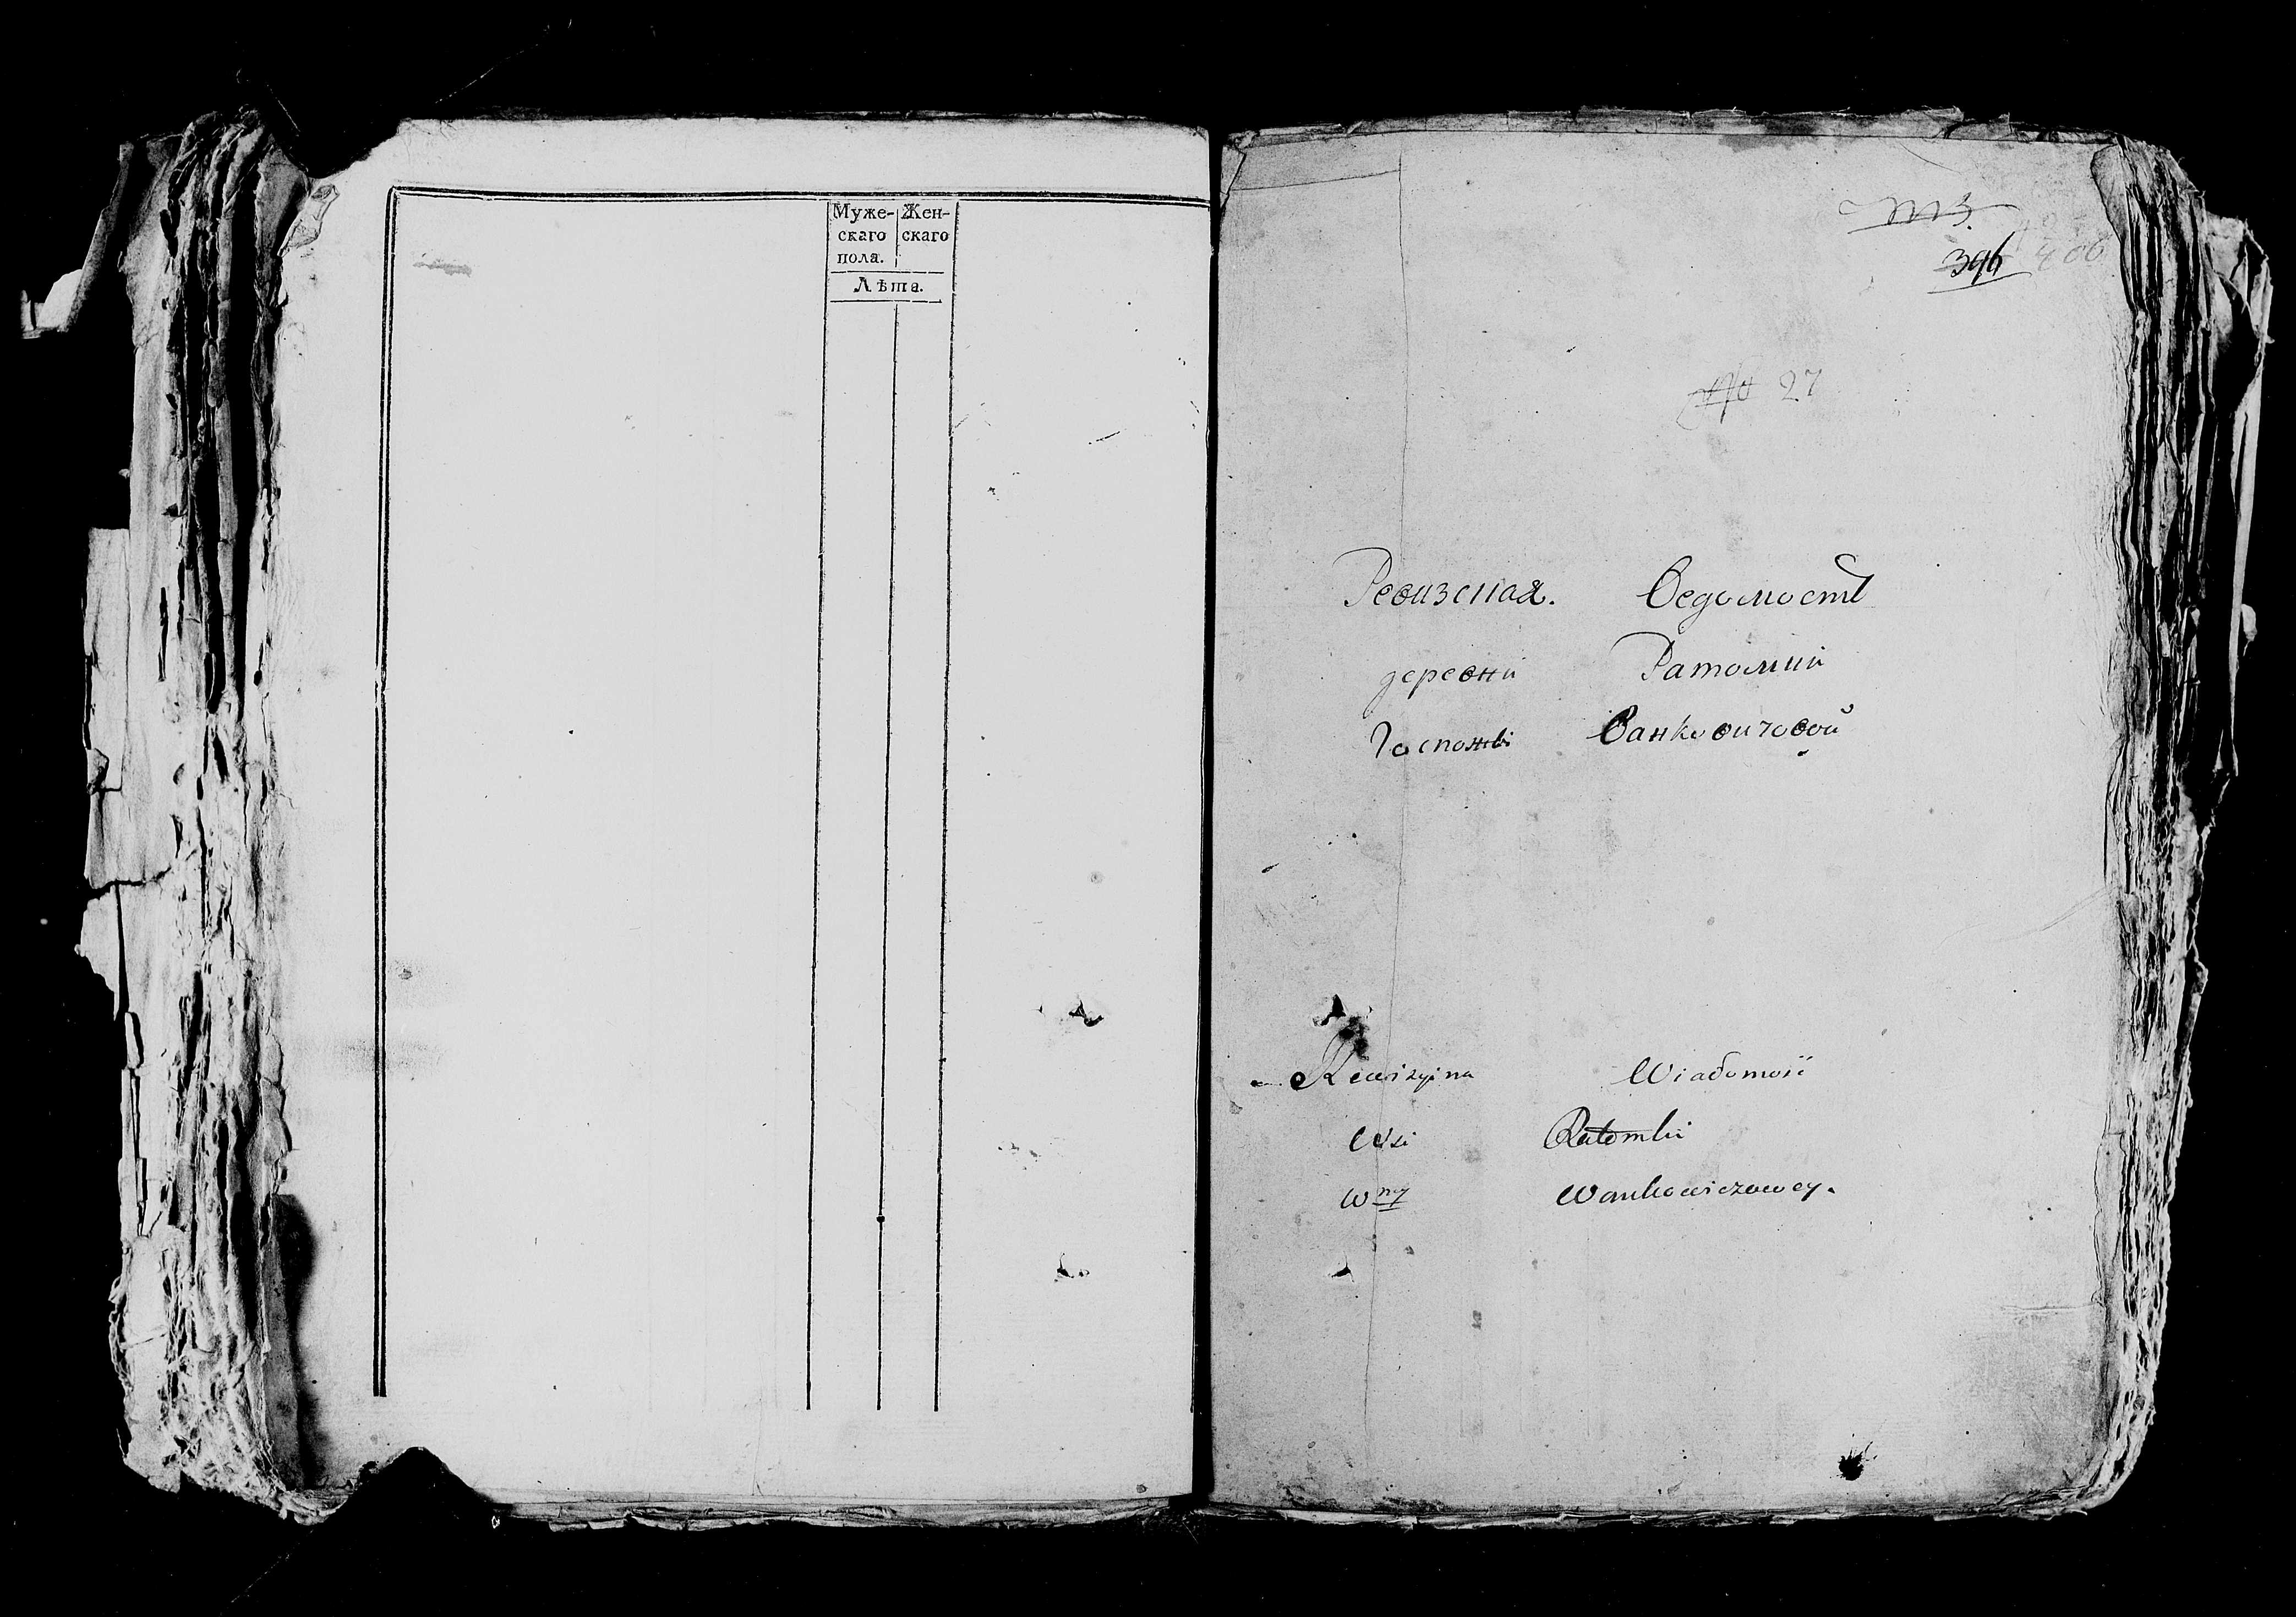 Муже- Жен-
скаго скаго
пола.
Лѣта.
396 406
№ 27
Ревизская. Ведомость
деревни Ратомки
Госпожи Ванковичовой
Rewizyina Wiadomość
Wsi Ratomki
Wney Wankowiczowey.